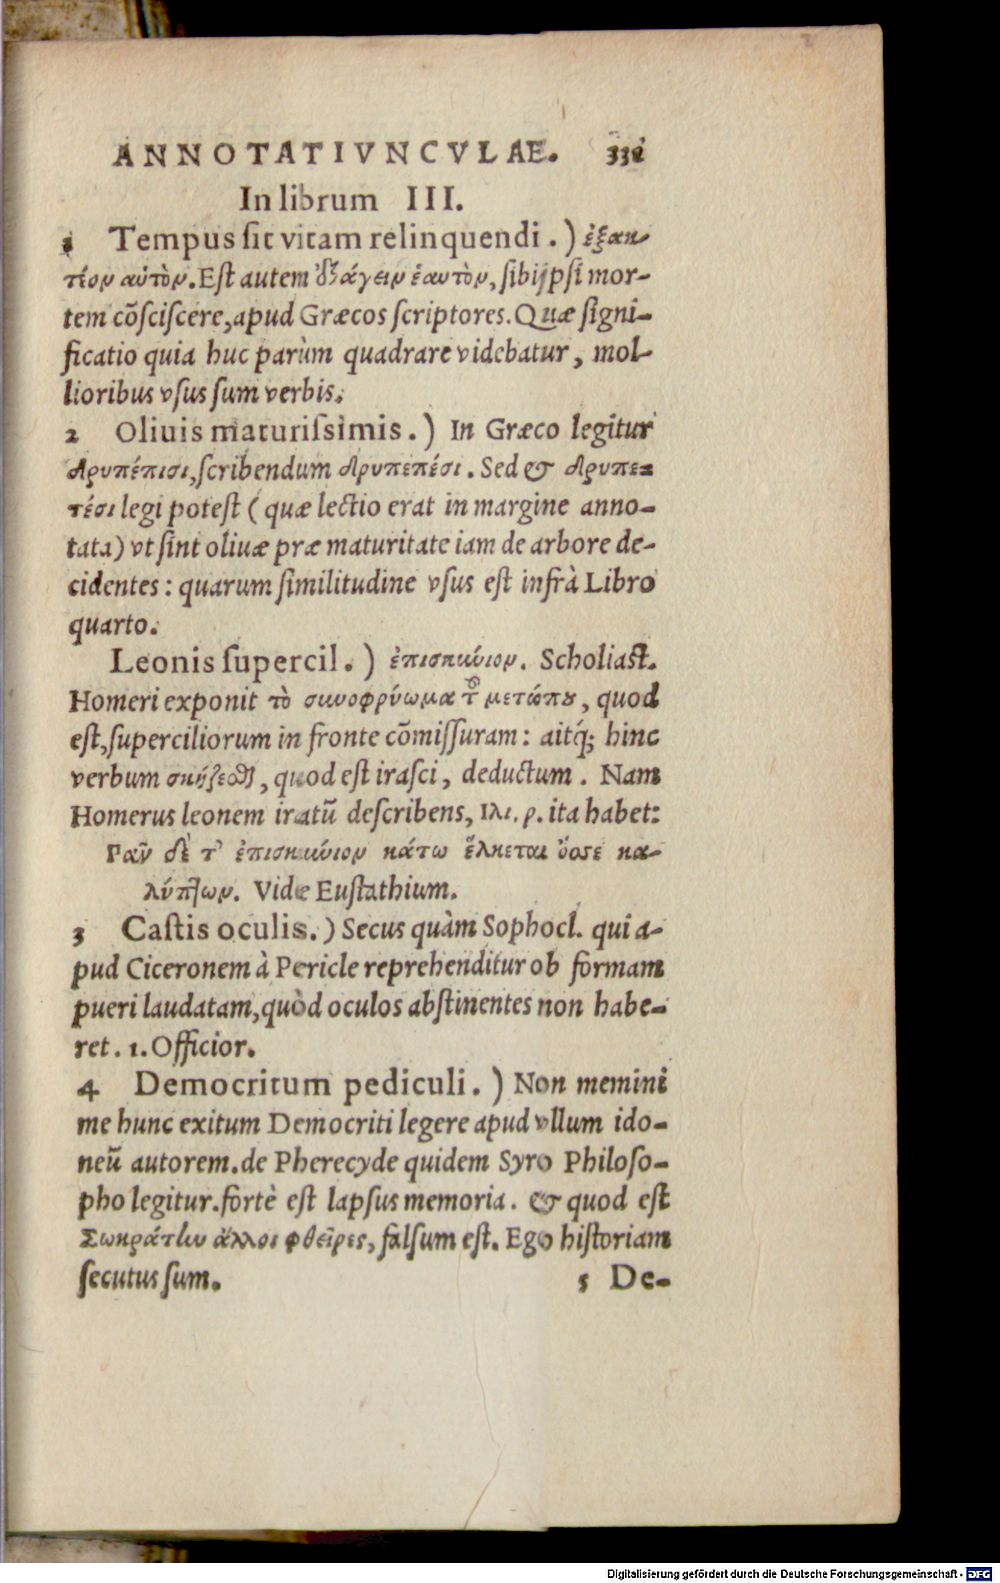 ANNOTATIVNCVLAE. 331
In librum III.
1 Tempus sit vitam relinquendi.) ἐξακ-
τέον αὑτὸν. Est autem ἐξάγειν ἑαυτὸν, sibijpsi mor-
tem cōsciscere, apud Græcos scriptores. Quæ signi-
ficatio quia huc parùm quadrare videbatur, mol-
lioribus vsus sum verbis.
2 Oliuis maturissimis.) In Græco legitur
δρυπέπισι, scribendum δρυπεπέσι. Sed & δρυπε-
τέσι legi potest (quæ lectio erat in margine anno-
tata) vt sint oliuæ præ maturitate iam de arbore de-
cidentes: quarum similitudine vsus est infrà Libro
quarto.
Leonis supercil.) ἐπισκύνιον. Scholiast.
Homeri exponit τὸ σκυνοφρύωμα τοῦ μετώπου, quod
est, superciliorum in fronte cōmissuram: aitq́; hinc
verbum σκύζεσθαι, quod est irasci, deductum. Nam
Homerus leonem iratū describens, Ιλι. ρ. ita habet:
Γᾶν δέ τ' ἐπισκύνιον κάτω ἕλκεται ὄσσε κα-
λύπτων. Vide Eustathium.
3 Castis oculis.) Secus quàm Sophocl. qui a-
pud Ciceronem à Pericle reprehenditur ob formam
pueri laudatam, quòd oculos abstinentes non habe-
ret. 1. Officior.
4 Democritum pediculi.) Non memini
me hunc exitum Democriti legere apud vllum ido-
neū autorem. de Pherecyde quidem Syro Philoso-
pho legitur. fortè est lapsus memoria. & quod est
Σωκράτην ἄλλοι φθεῖρες, falsum est. Ego historiam
secutus sum.
5 De-
Digitalisierung gefördert durch die Deutsche Forschungsgemeinschaft - DFG